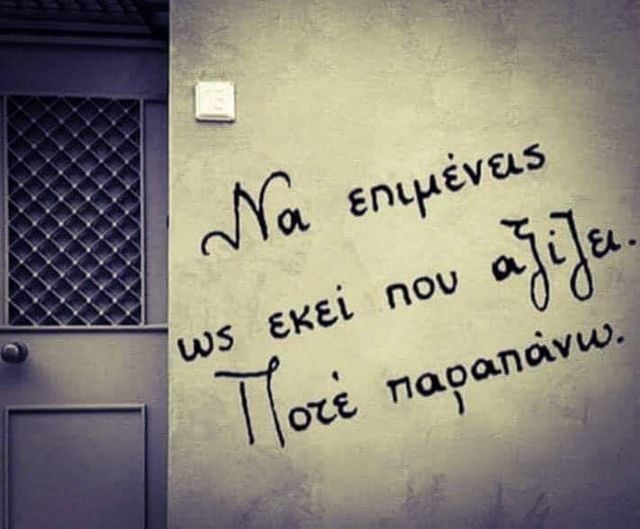 Να επιμένεις
ως εκεί που αξίζει.
Ποτέ παραπάνω.